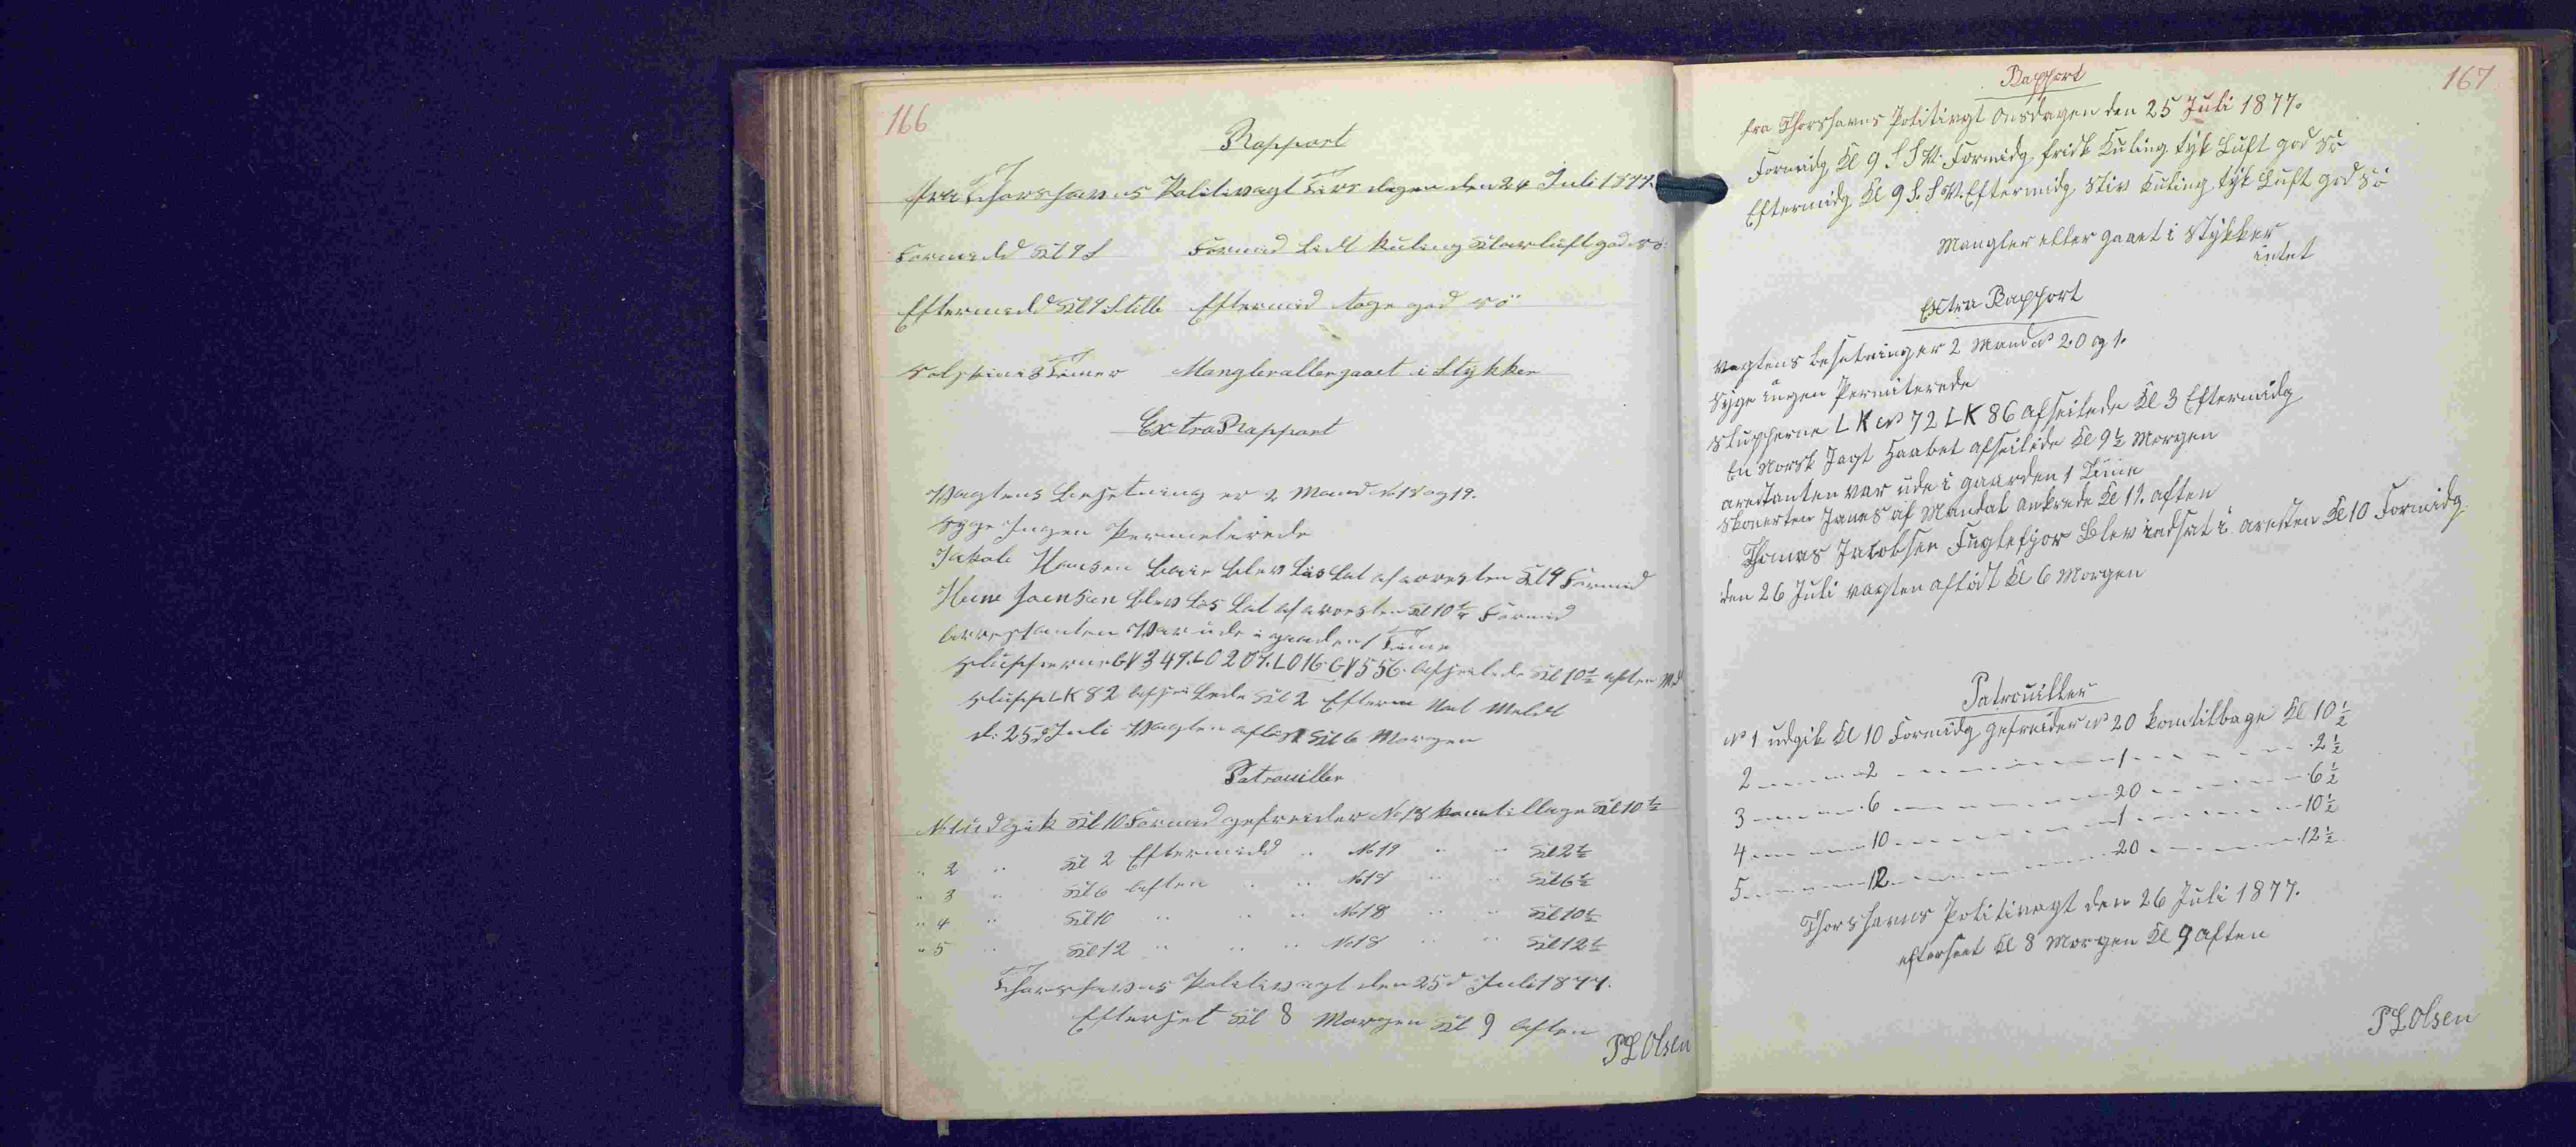 166
Rapport
fra Thorshavns Politivagt Tirsdagen den 24 Juli 1877.
Formidd Kl 9 S Formid Lidt Kuling Klar luft god Sö
Eftermidd Kl 9 Stille Eftermid toge god Sö
Solskin i 3 Timer Mangler aller gaaet i Stykker
Extra Rapport
Vagtens Besetning er 2 Mand No 18 og 19.
Syge Ingen Permeterede
Jakob Hansen blev Löslat af arresten Kl 9 Formid
Joensen blev Lös Lat af arresten Kl 10 1/2 Formid
Arrestanten Var ude i gaarden 1 Time
Slupperne GV 349. LO 207. LO 16. GV 556. Afseilede Kl 10 1/2 aften
Slup LK 82 Afseilede Kl 2 Efterm
d. 25d Juli Vagten aflöst Kl 6 Morgen
Patrouiller
No 1 udgik Kl 10 Formid gefreider No 18 kom tilbage Kl 10 1/2
" 2 " Kl 2 Eftermidd " No 19 " " Kl 2 1/2
" 3 " Kl 6 Aften " " No 18 " " Kl 6 1/2
" 4 " Kl 10 " " " No 18 " " Kl 10 1/2
" 5 " Kl 12 " " " No 18 " " Kl 12 1/2
Thorshavns Politivagt den 25d Juli 1877.
Efterset Kl 8 Morgen Kl 9 Aften
P L Olsen
167
Rapport
fra Thorshavns Politivagt Onsdagen den 25 Juli 1877.
Formidg Kl 9 S S V. Formidg frisk Kuling tyk Luft god Sö
Eftermidg Kl 9 S. S V. Eftermidg Stiv Kuling tyk Luft god Sö
Mangler eller gaaet i Stykker
intet
Extra Rapport
Vagtens besetning er 2 Mand No 20 og 1.
Syge ingen Permiterede
Slupperne LK No 72 LK 86 afseilede Kl 3 Eftermidg
En Norsk Jagt Haabet afseilede Kl 9 1/2 Morgen
arestanten var ude i gaarden 1 Time
Skonerten Janus af Mandal ankrede Kl 11. aften
Thomas Jacobsen Fuglefjor Blev indsat i aresten Kl 10 Formidg.
den 26 Juli vagten aflöst Kl 6 Morgen
Patrouiller
No 1 udgik Kl 10 Formidg gefreider No 20 kom tilbage Kl 10 1/2
2 - - - 2 - - - 1 - - - 2 1/2
3 - - - 6 - - - 20 - - - 6 1/2
4 - - - 10 - - - 1 - - - 10 1/2
5 - - - 12 - - - 20 - - - 12 1/2
Thorshavns Politivagt den 26 Juli 1877.
efterseet Kl 8 Morgen Kl 9 aften
P L Olsen